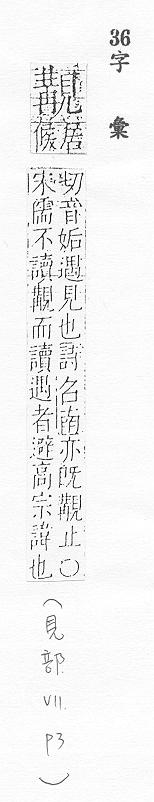 36字彙
覯
居
候
切音姤遇見也詩召南亦既覯止○
宋儒不讀覯而讀遇者避高宗諱也
(見部 VII. P3)